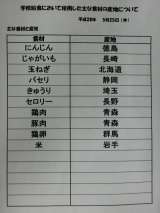 学校給食において使用した主な食材の産地について
平成28年 5月25日(水)
主な食材と産地
食材 産地
にんじん 徳島
じゃがいも 長崎
玉ねぎ 北海道
パセリ 静岡
きゅうり 埼玉
セロリー 長野
鶏肉 青森
豚肉 青森
鶏卵 群馬
米 岩手